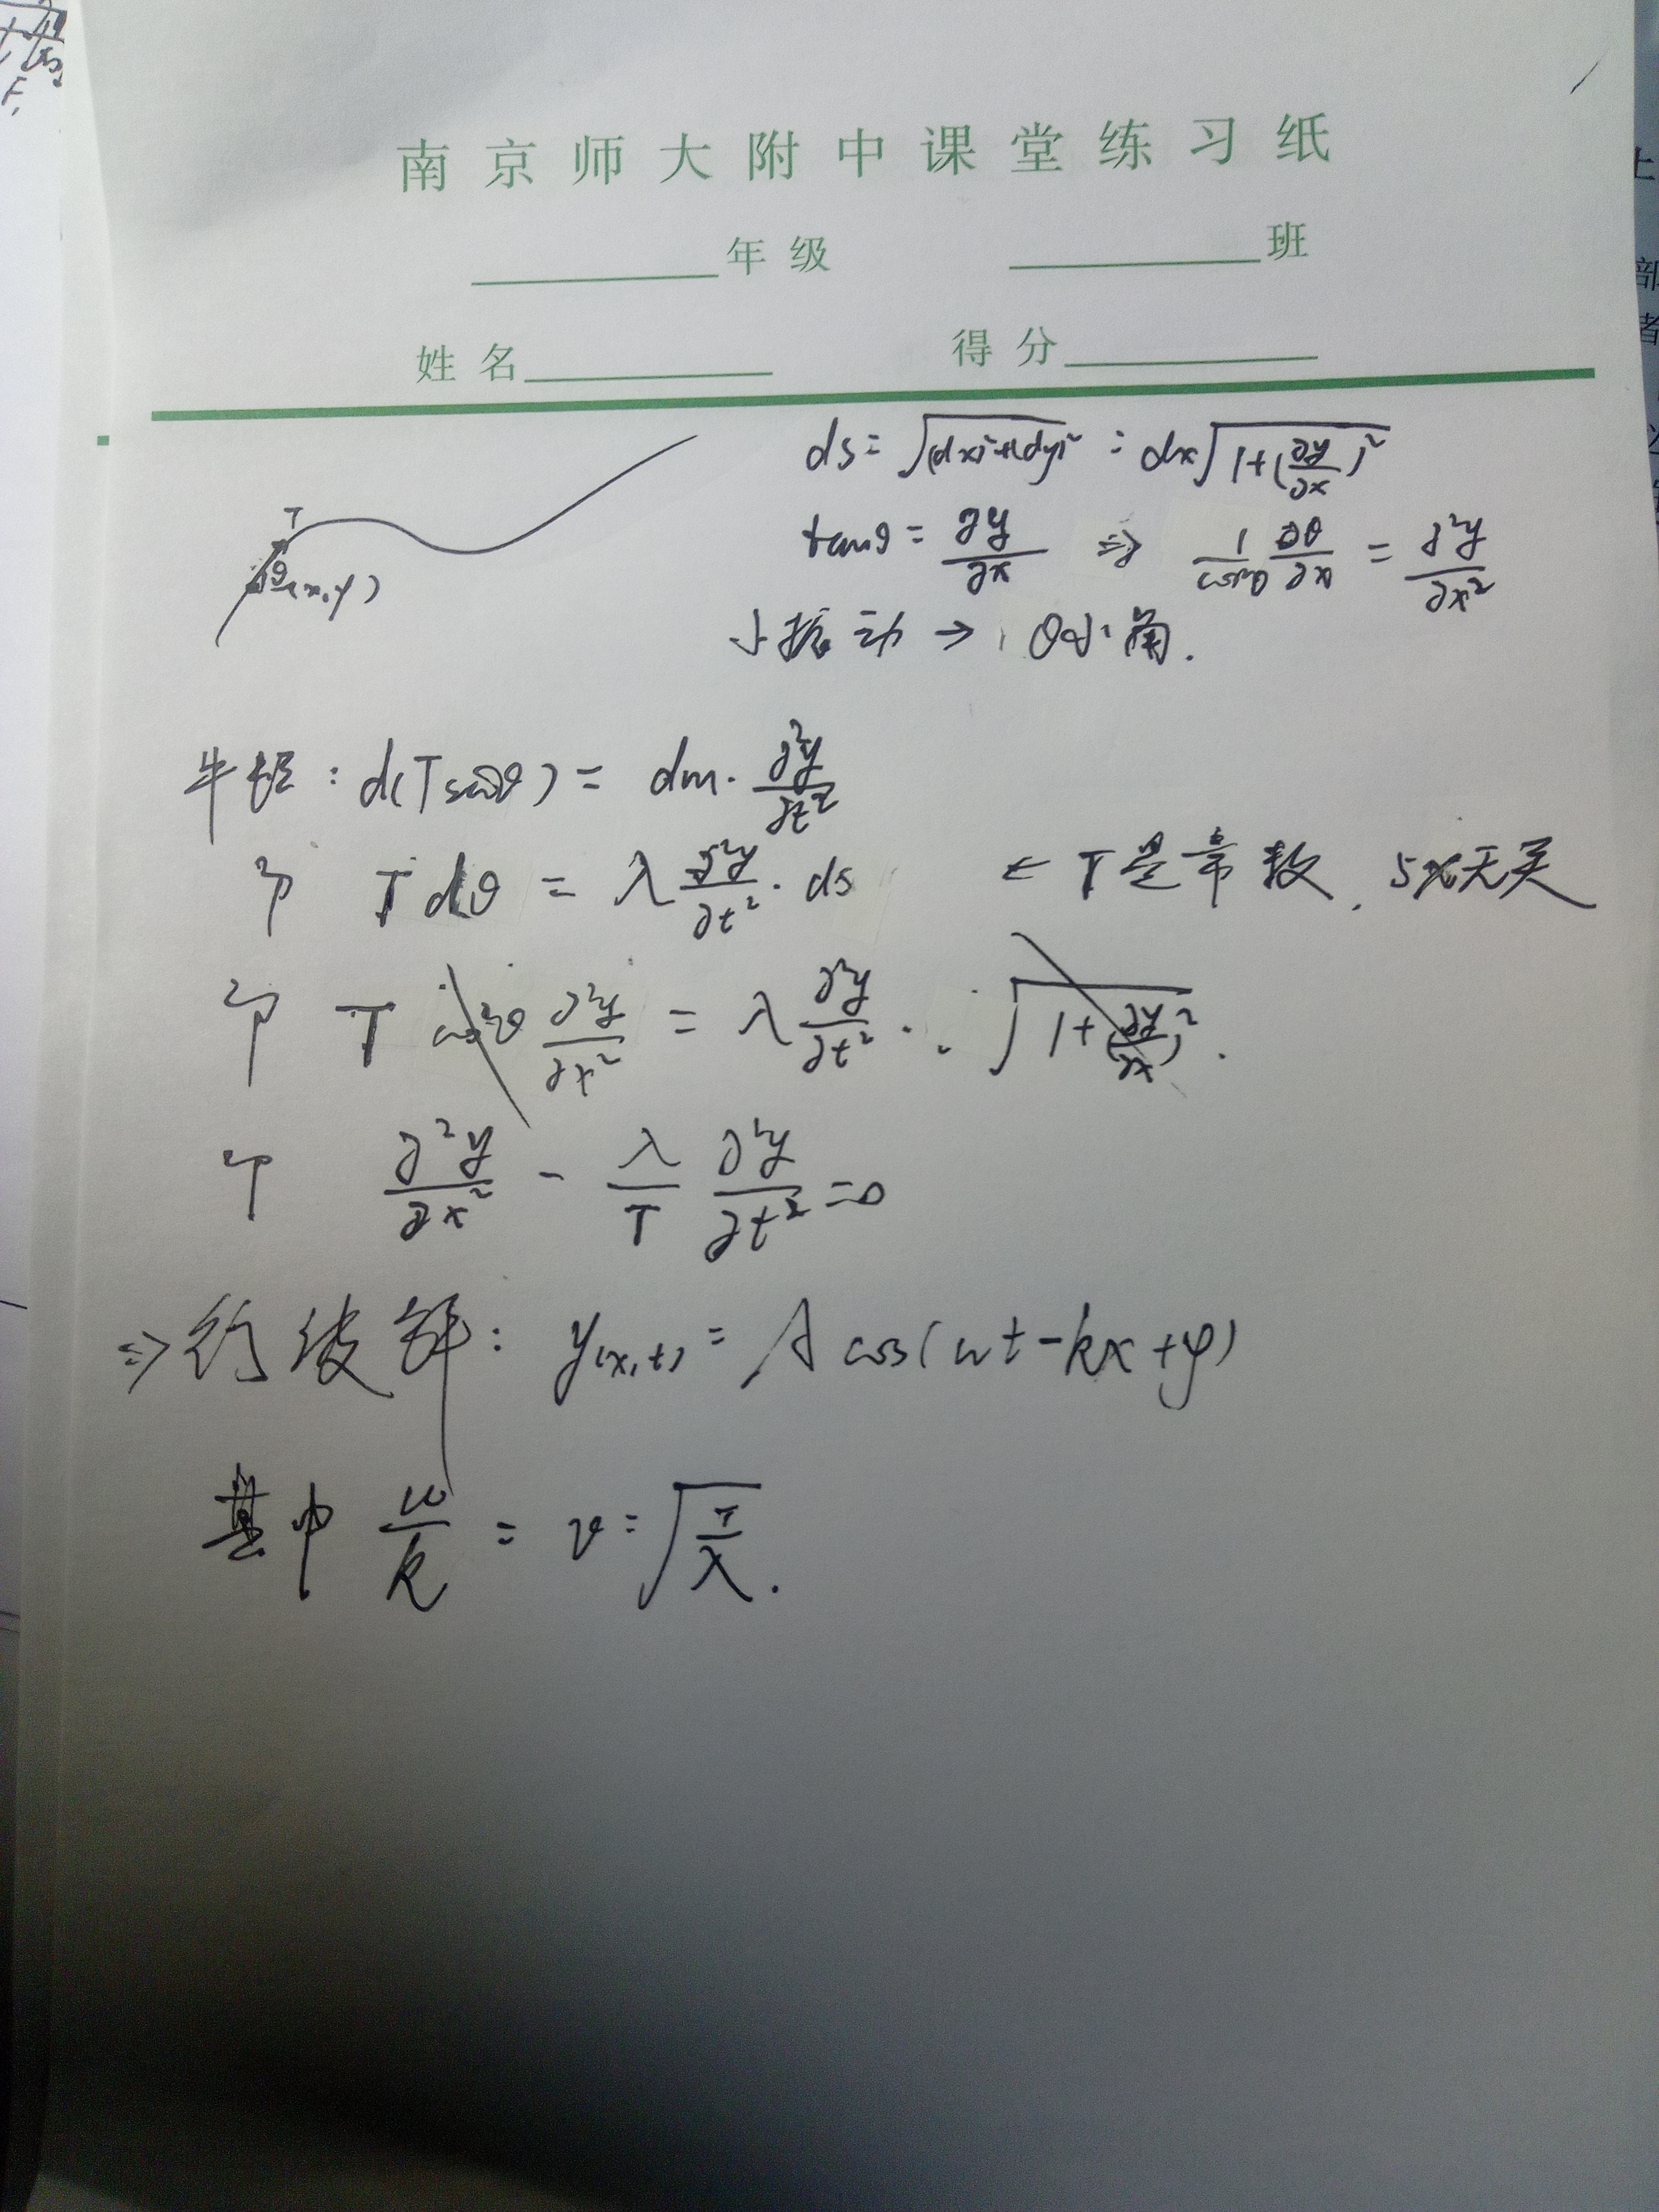 南京师大附中课堂练习纸
年级 班
姓名 得分
ds = √((dx)²+(dy)²) = dx√(1+(∂y/∂x)²)
T
θ (x,y)
tanθ = ∂y/∂x ⇒ 1/cos²θ ∂θ/∂x = ∂²y/∂x²
小振动 → θ小角.
牛顿: d(Tsinθ) = dm·∂²y/∂t²
T dθ = λ ∂²y/∂t² · ds ← T是常数, 与x无关
T cos²θ ∂²y/∂x² = λ ∂²y/∂t² · √(1+(∂y/∂x)²).
∂²y/∂x² - λ/T ∂²y/∂t² = 0
⇒ 行波解: y(x,t) = A cos(ωt-kx+φ)
其中 ω/k = v = √(T/λ).